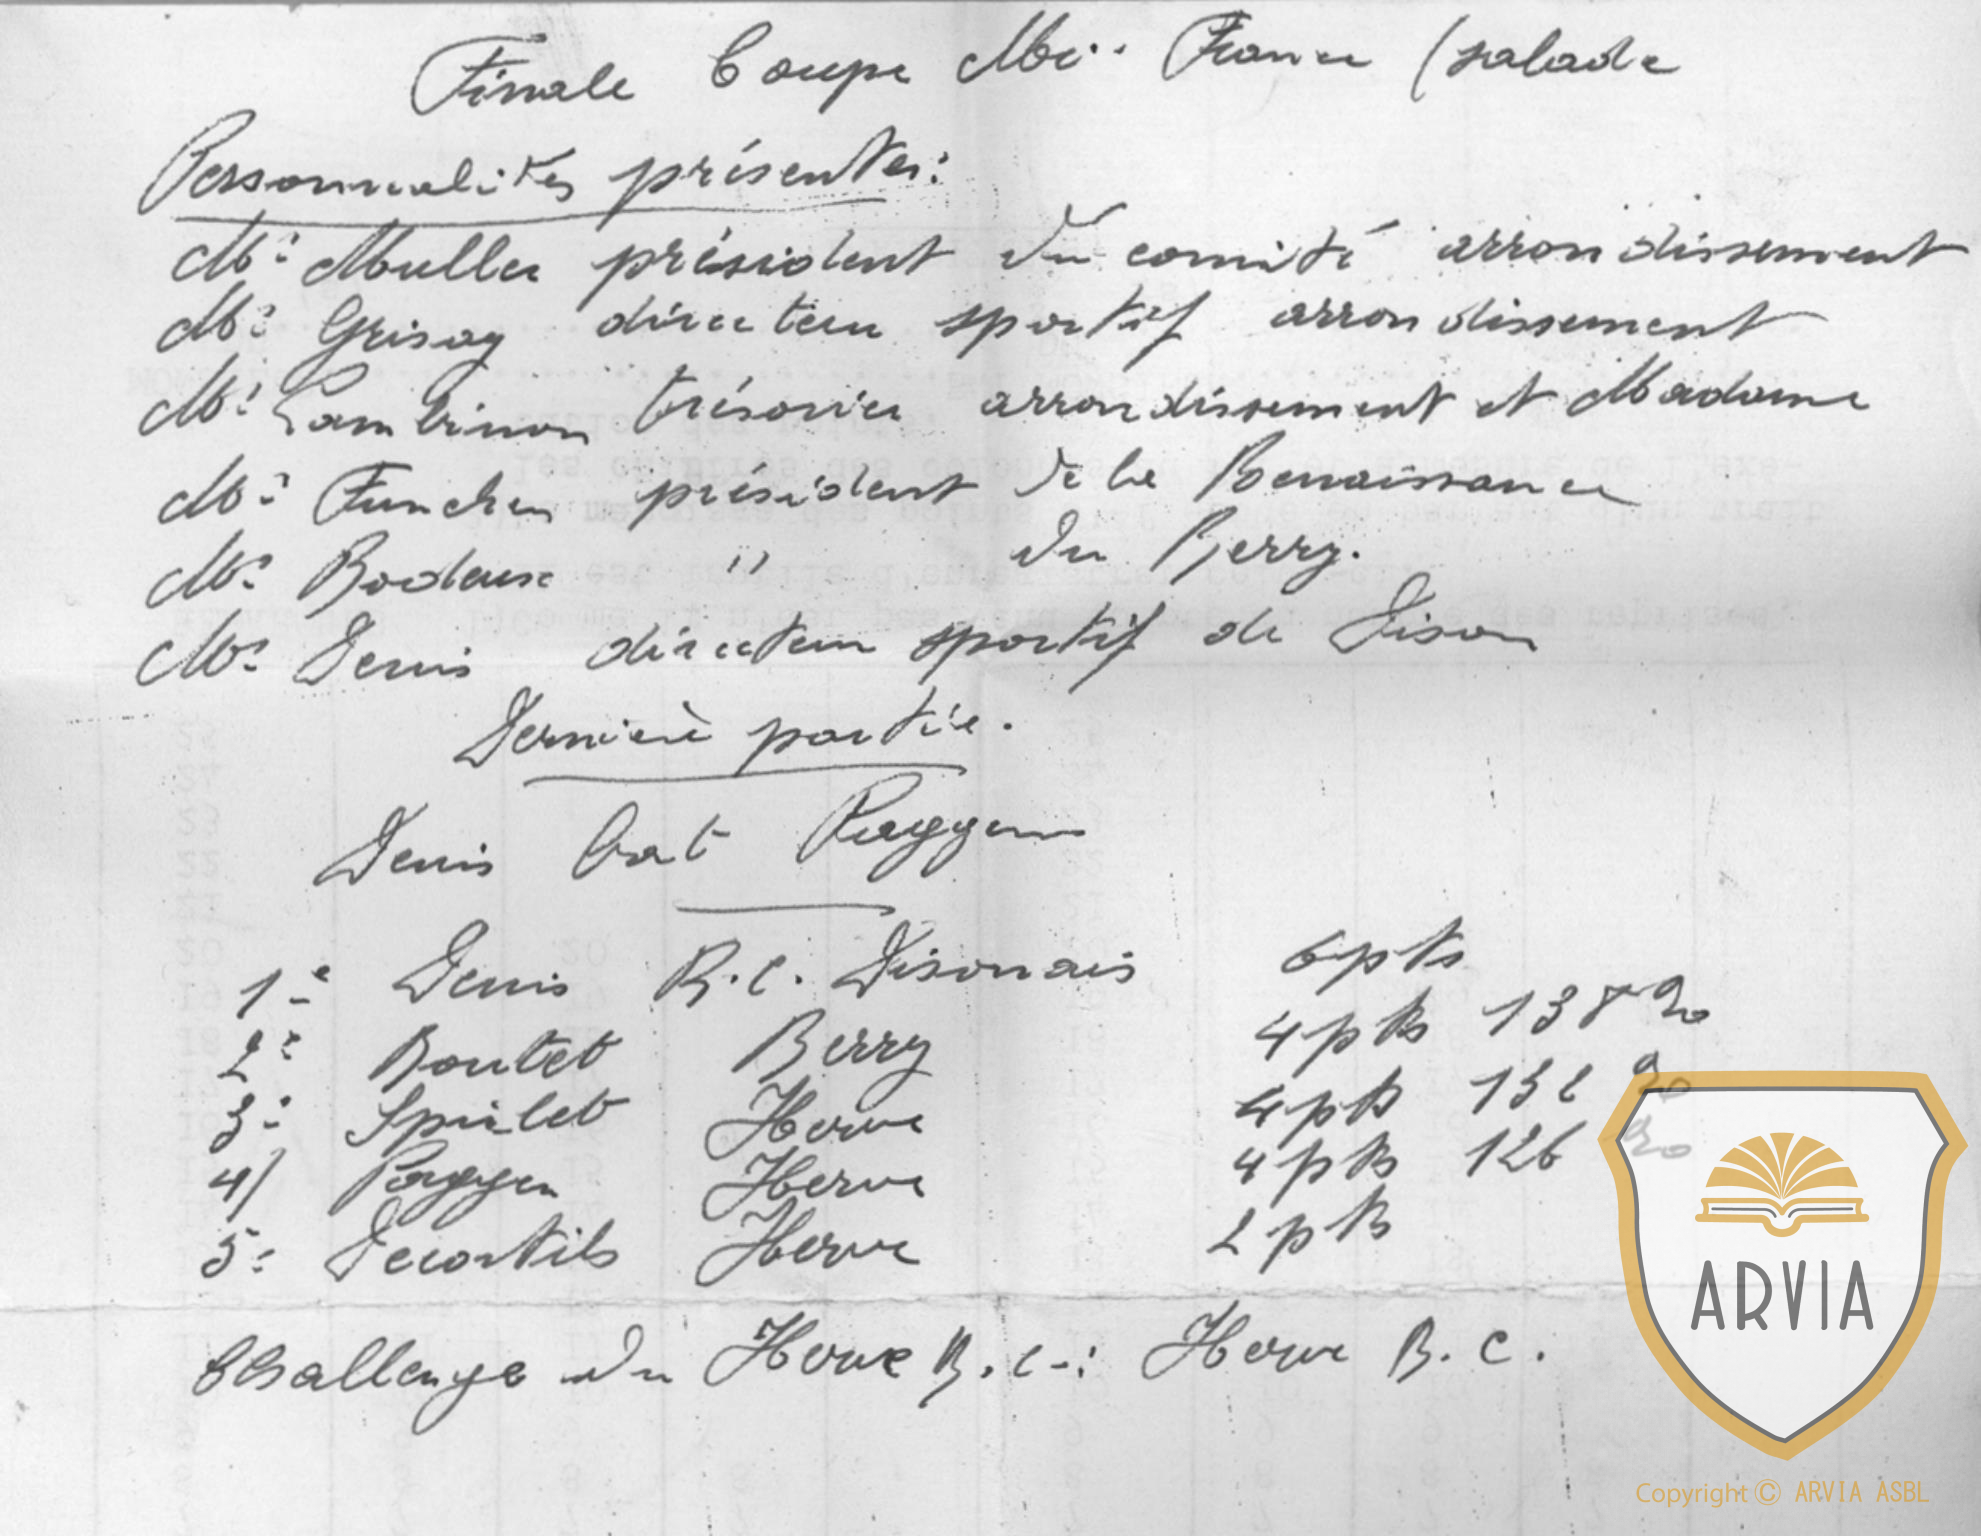 Finale Coupe Mr France (salade
Personnalités présentes:
Mr Muller président du comité arrondissement
Mr Grisay directeur sportif arrondissement
Mr Lambinon trésorier arrondissement et Madame
Mr Funcken président de la Renaissance
Mr Bodeux " du Berry.
Mr Denis directeur sportif de Dison
Dernière partie.
Denis bat Paggen
1e Denis B.C. Disonais 6 pts
2e Boutet Berry 4 pts 138 20
3e Spirlet Herve 4 pts 132 20
4/ Paggen Herve 4 pts 126 20
5e Decortils Herve 2 pts
Challenge du Herve B.C.: Herve B.C.
ARVIA
Copyright © ARVIA ASBL